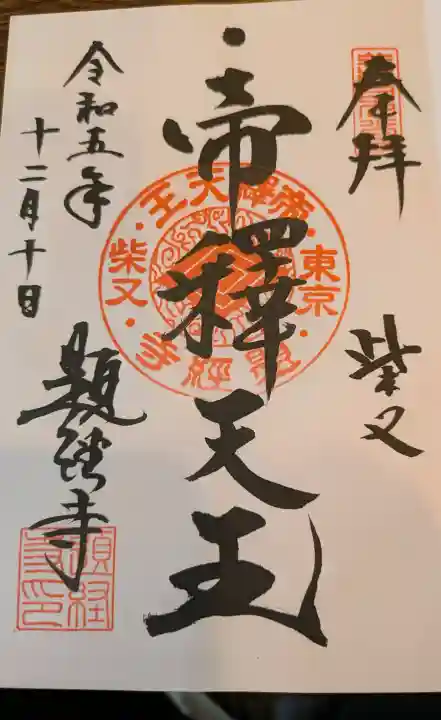 奉拝
柴又
帝釋天王
帝釋天王
東京
柴又
題経寺
令和五年
十二月十日
題経寺
題経寺印